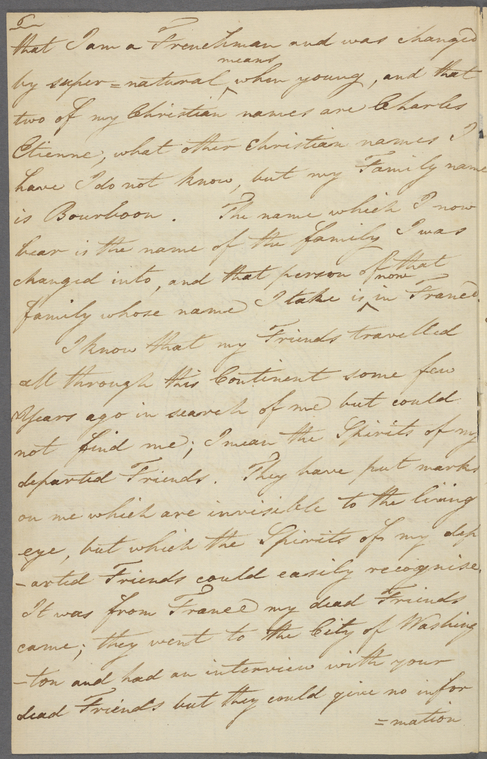 that I am a Frenchman and was changed
means
by super=natural ‸ when young, and that
two of my Christian names are Charles
Etienne; what other Christian names I
have I do not know, but my Family name
is Bourboon. The name which I now
bear is the name of the family I was
changed into, and that person of that
now
family whose name I take is ‸ in France.
I know that my Friends travelled
all through this Continent some few
Years ago in search of me but could
not find me; I mean the Spirits of my
departed Friends. They have put marks
on me which are invisible to the living
eye, but which the Spirits of my dep
=arted Friends could easily recognise.
It was from France my dead Friends
came; they went to the City of Washing
=ton and had an interview with your
dead Friends but they could give no infor
=mation